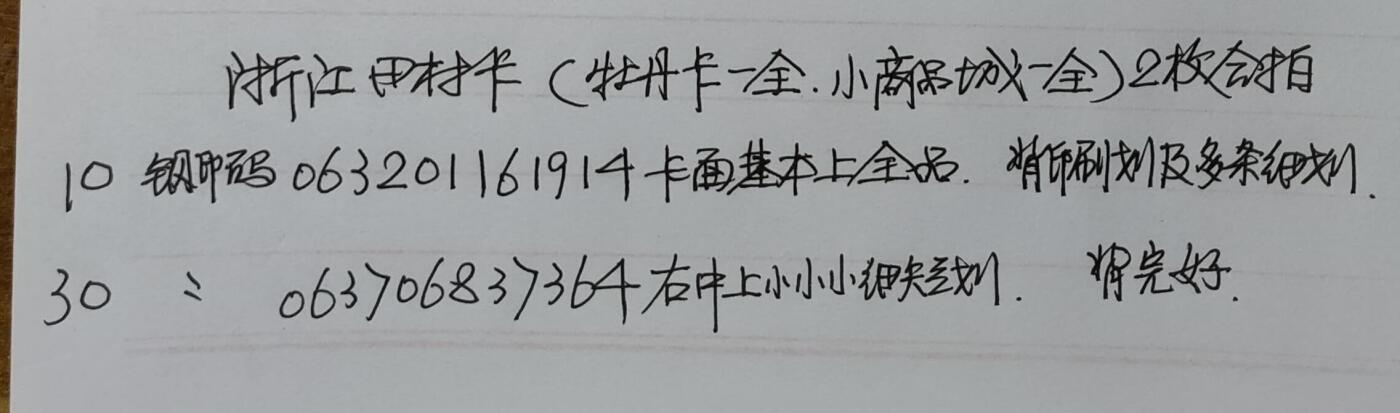 浙江田村卡(牡丹卡一全.小商品城一全)2枚合拍
10 钢印码063201161914卡面基本上全品. 背印刷划及多条细划.
30 〃 063706837364右中上小小小细短划. 背完好.